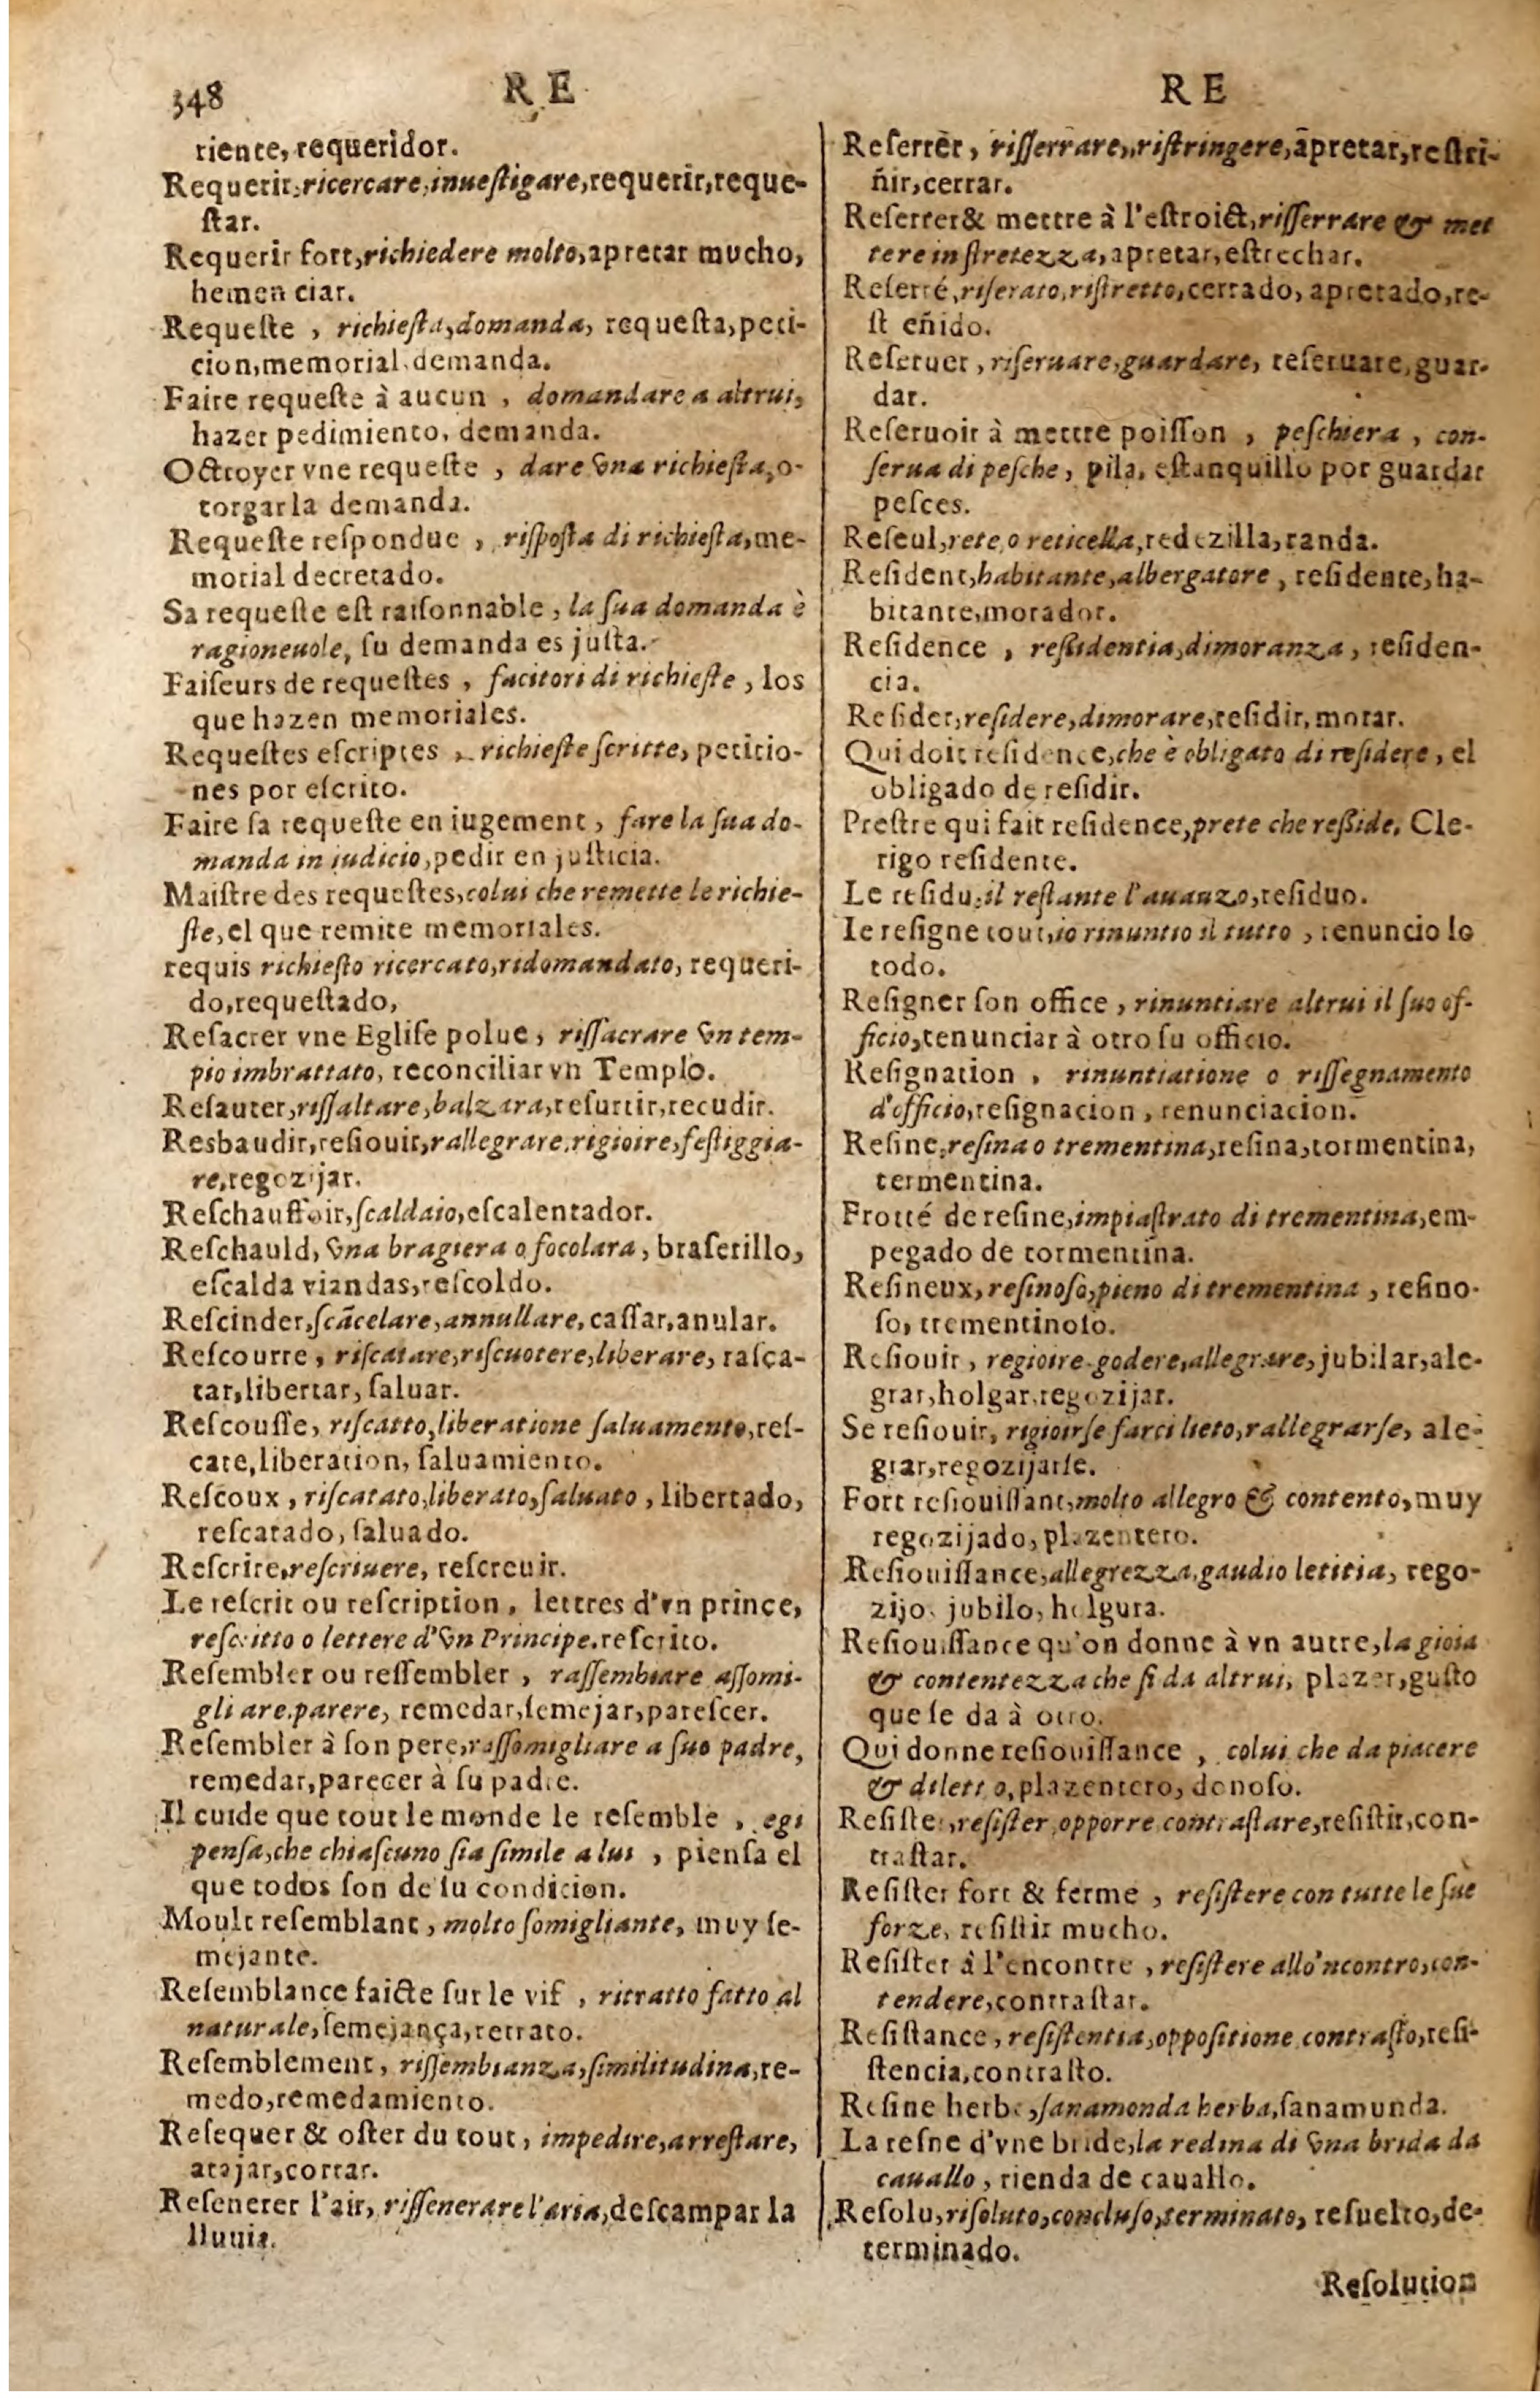 348
RE
RE
riente, requeridor.
Requerir, ricercare, inueſtigare, requerir, reque-
ſtar.
Requerir fort, richiedere molto, apretar mucho,
hemen ciar.
Requeſte , richieſta, domanda, requeſta, peti-
cion, memorial, demanda.
Faire requeſte à aucun , domandare a altrui,
hazer pedimiento, demanda.
Octroyer vne requeſte , dare vna richieſta, o-
torgar la demanda.
Requeſte reſpondue , riſpoſta di richieſta, me-
morial decretado.
Sa requeſte eſt raiſonnable , la ſua domanda è
ragioneuole, ſu demanda es juſta.
Faiſeurs de requeſtes , facitori di richieſte , los
que hazen memoriales.
Requeſtes eſcriptes , richieſte ſcritte, peticio-
nes por eſcrito.
Faire ſa requeſte en iugement , fare la ſua do-
manda in iudicio, pedir en juſticia.
Maiſtre des requeſtes, colui che remette le richie-
ſte, el que remite memoriales.
requis richieſto ricercato, ridomandato, requeri-
do, requeſtado,
Reſacrer vne Egliſe polue , riſſacrare vn tem-
pio imbrattato, reconciliar vn Templo.
Reſauter, riſſaltare, balzara, reſurtir, recudir.
Resbaudir, reſiouir, rallegrare, rigioire, feſtiggia-
re, regozijar.
Reſchauffoir, ſcaldaio, eſcalentador.
Reſchauld, vna bragiera o focolara , braſerillo,
eſcalda viandas, reſcoldo.
Reſcinder, ſcãcelare, annullare, caſſar, anular.
Reſcourre , riſcatare, riſcuotere, liberare, raſça-
tar, libertar, ſaluar.
Reſcouſſe, riſcatto, liberatione ſaluamento, reſ-
cate, liberation, ſaluamiento.
Reſcoux , riſcatato, liberato, ſaluato , libertado,
reſcatado, ſaluado.
Reſcrire, reſcriuere, reſcreuir.
Le reſcrit ou reſcription , lettres d'vn prince,
reſcritto o lettere d'vn Principe. reſcrito.
Reſembler ou reſſembler , raſſembiare aſſomi-
gli are. parere, remedar, ſemejar, pareſcer.
Reſembler à ſon pere, raſſomigliare a ſuo padre,
remedar, parecer à ſu padre.
Il cuide que tout le monde le reſemble , egi
penſa, che chiaſcuno ſia ſimile a lui , pienſa el
que todos ſon de ſu condicion.
Moult reſemblant , molto ſomigliante, muy ſe-
mejante.
Reſemblance faicte ſur le vif , ritratto fatto al
naturale, ſemejança, retrato.
Reſemblement , riſſembianza, ſimilitudina, re-
medo, remedamiento.
Reſequer & oſter du tout , impedire, arreſtare,
atajar, cortar.
Reſenerer l'air, riſſenerare l'aria, deſcampar la
lluuia.
Reſerrer , riſſerrare, riſtringere, ãpretar, reſtri-
ñir, cerrar.
Reſerrer & mettre à l'eſtroict, riſſerrare & met
tere in ſtretezza, apretar, eſtrechar.
Reſerré, riſerato, riſtretto, cerrado, apretado, re-
ſt eñido.
Reſeruer , riſeruare, guardare, reſeruare, guar-
dar.
Reſeruoir à mettre poiſſon , peſchiera , con-
ſerua di peſche , pila, eſtanquillo por guardar
peſces.
Reſeul, rete, o reticella, redezilla, randa.
Reſident, habitante, albergatore , reſidente, ha-
bitante, morador.
Reſidence , reſsidentia, dimoranza , reſiden-
cia.
Reſider, reſidere, dimorare, reſidir, morar.
Qui doit reſidence, che è obligato di reſidere , el
obligado de reſidir.
Preſtre qui fait reſidence, prete che reſside, Cle-
rigo reſidente.
Le reſidu, il reſtante l'auanzo, reſiduo.
Ie reſigne tout, io rinuntio il tutto , renuncio lo
todo.
Reſigner ſon office , rinuntiare altrui il ſuo of-
ficio, renunciar à otro ſu officio.
Reſignation , rinuntiatione o riſſegnamento
d'officio, reſignacion , renunciacion.
Reſine, reſina o trementina, reſina, tormentina,
termentina.
Frotté de reſine, impiaſtrato di trementina, em-
pegado de tormentina.
Reſineux, reſinoſo, pieno di trementina , reſino-
ſo, trementinoſo.
Reſiouir , regioire godere, allegrare, jubilar, ale-
grar, holgar, regozijar.
Se reſiouir, rigioirſe farci lieto, rallegrarſe, ale-
grar, regozijarſe.
Fort reſiouiſſant, molto allegro & contento, muy
regozijado, plazentero.
Reſiouiſſance, allegrezza, gaudio letitia, rego-
zijo, jubilo, holgura.
Reſiouiſſance qu'on donne à vn autre, la gioia
& contentezza che ſi da altrui, plazer, guſto
que ſe da à otro.
Qui donne reſiouiſſance , colui che da piacere
& dilett o, plazentero, donoſo.
Reſiſter, reſiſter opporre contraſtare, reſiſtir, con-
traſtar.
Reſiſter fort & ferme , reſiſtere con tutte le ſue
forze, reſiſtir mucho.
Reſiſter à l'encontre , reſiſtere allo'ncontro, con-
tendere, contraſtar.
Reſiſtance , reſiſtentia, oppoſitione contraſto, reſi-
ſtencia, contraſto.
Reſine herbe, ſanamonda herba, ſanamunda.
La reſne d'vne bride, la redina di vna brida da
cauallo , rienda de cauallo.
Reſolu, riſoluto, concluſo, terminato, reſuelto, de-
terminado.
Reſolution